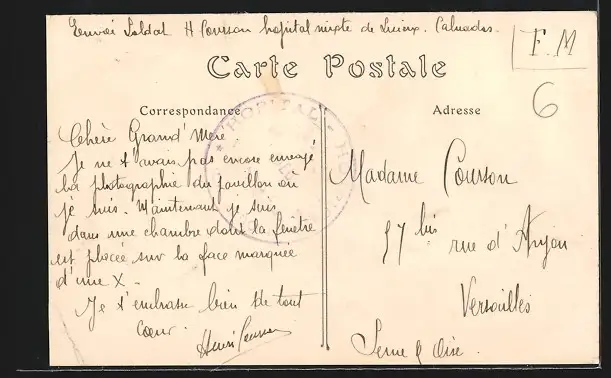 Envoi Soldat H Courson hopital mixte de Lisieux. Calvados.
F. M
6
Carte Postale
Correspondance
Adresse
HOPITAL
Chère Grand'Mère.
Je ne t'avais pas encore envoyé
la photographie du pavillon où
je suis. Maintenant je suis
dans une chambre dont la fenêtre
est placée sur la face marquée
d'une X.
Je t'embrasse bien de tout
cœur.
Henri Courson
Madame Courson
57 bis rue d'Anjou
Versailles
Seine & Oise.